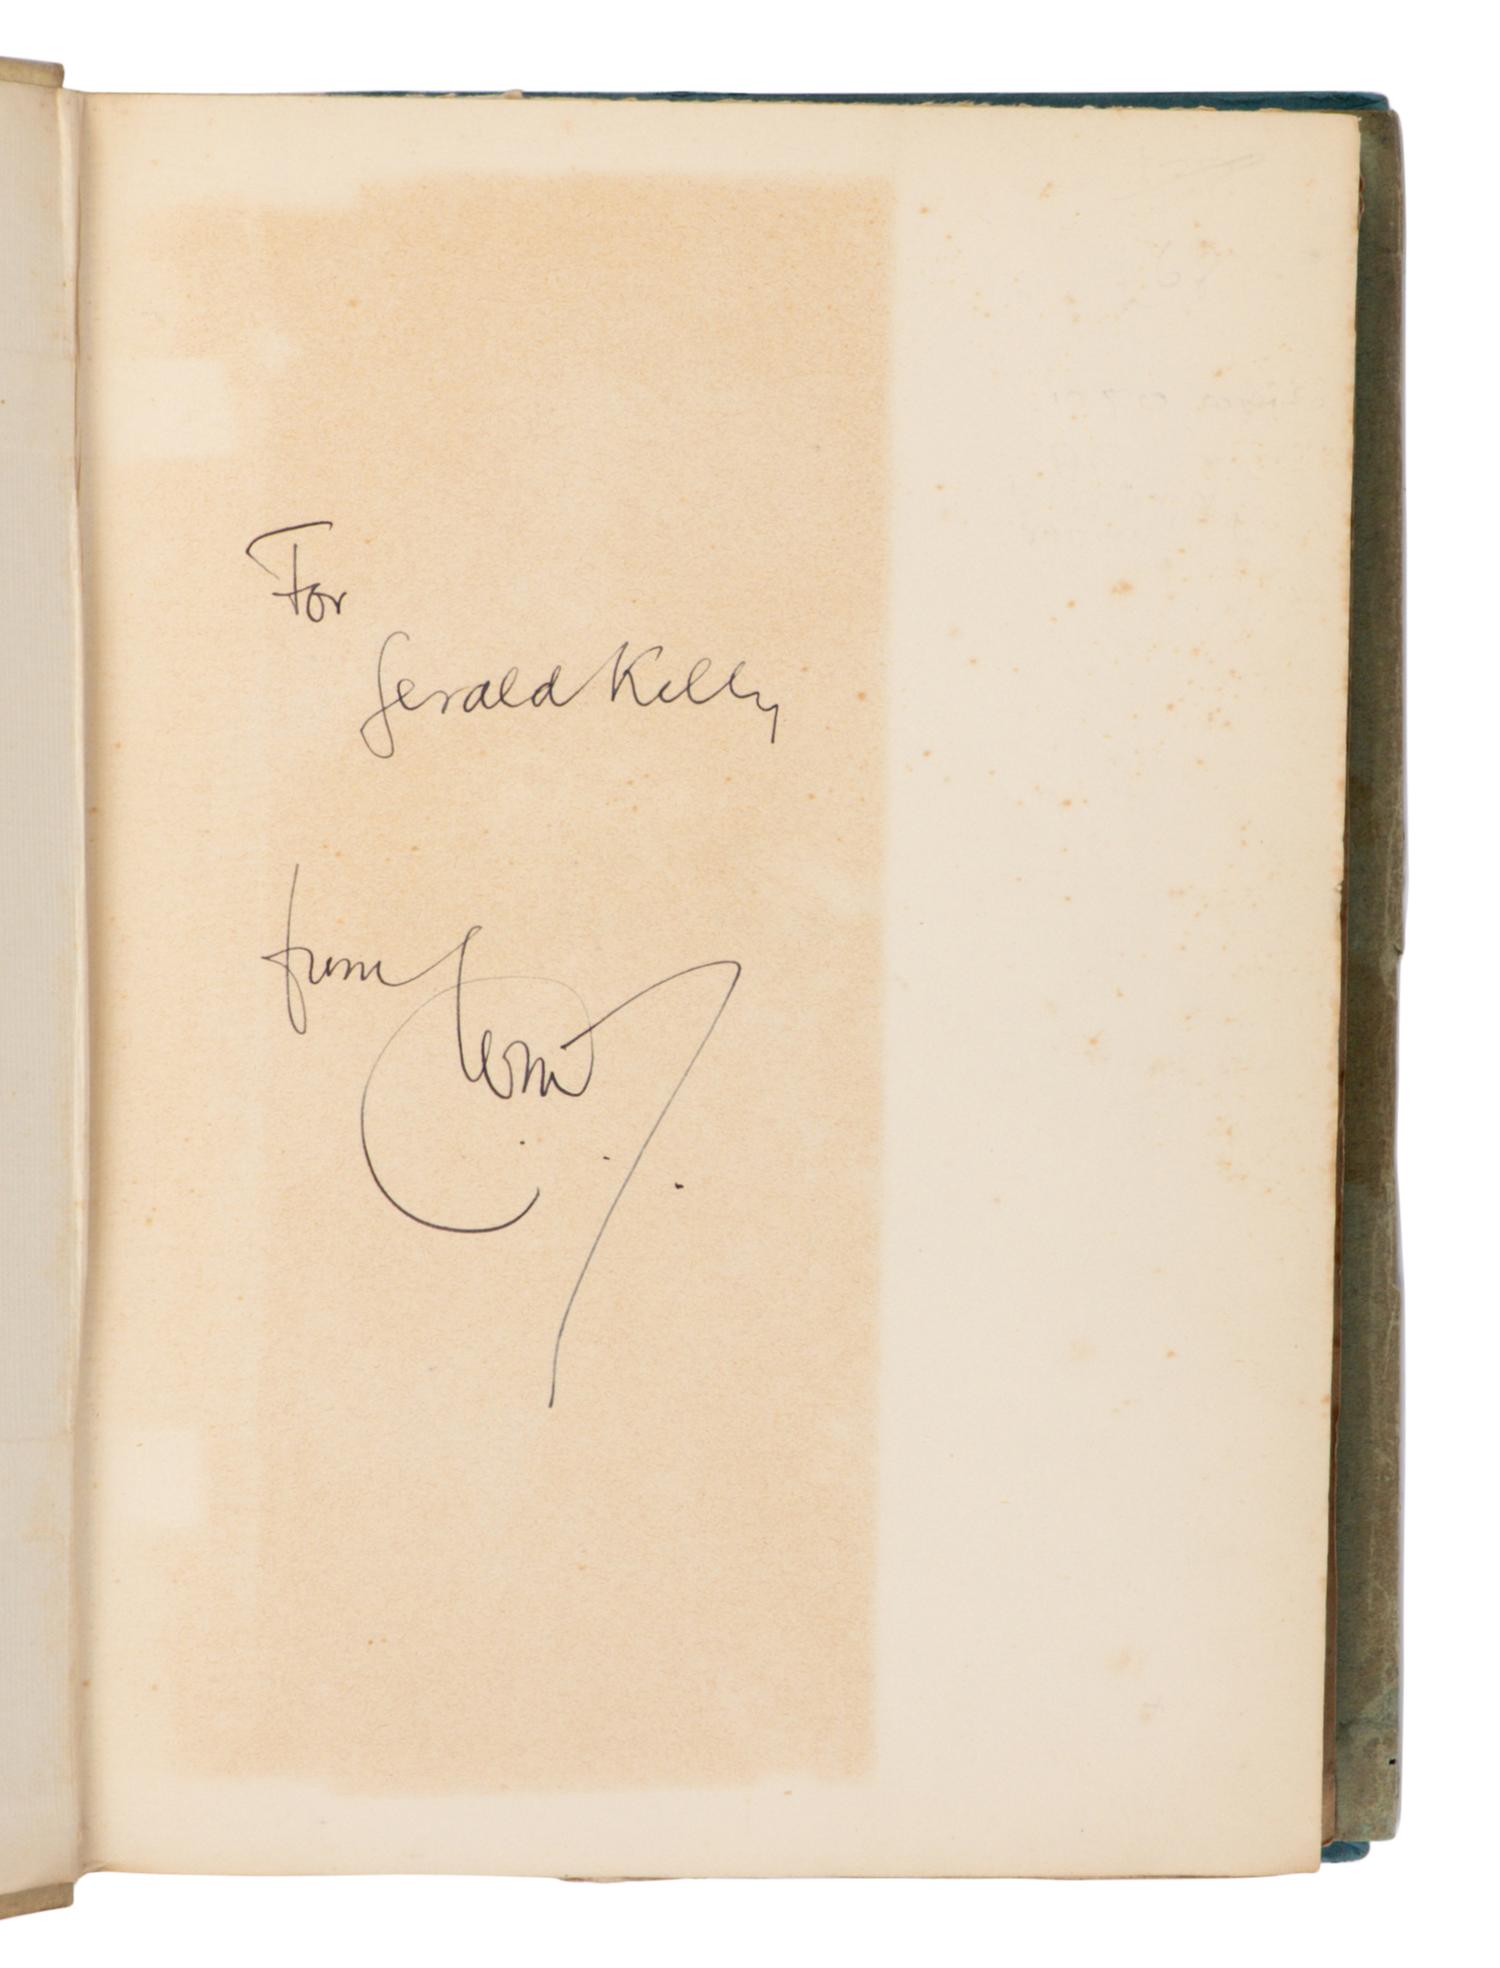 For
Gerald Kelly
from